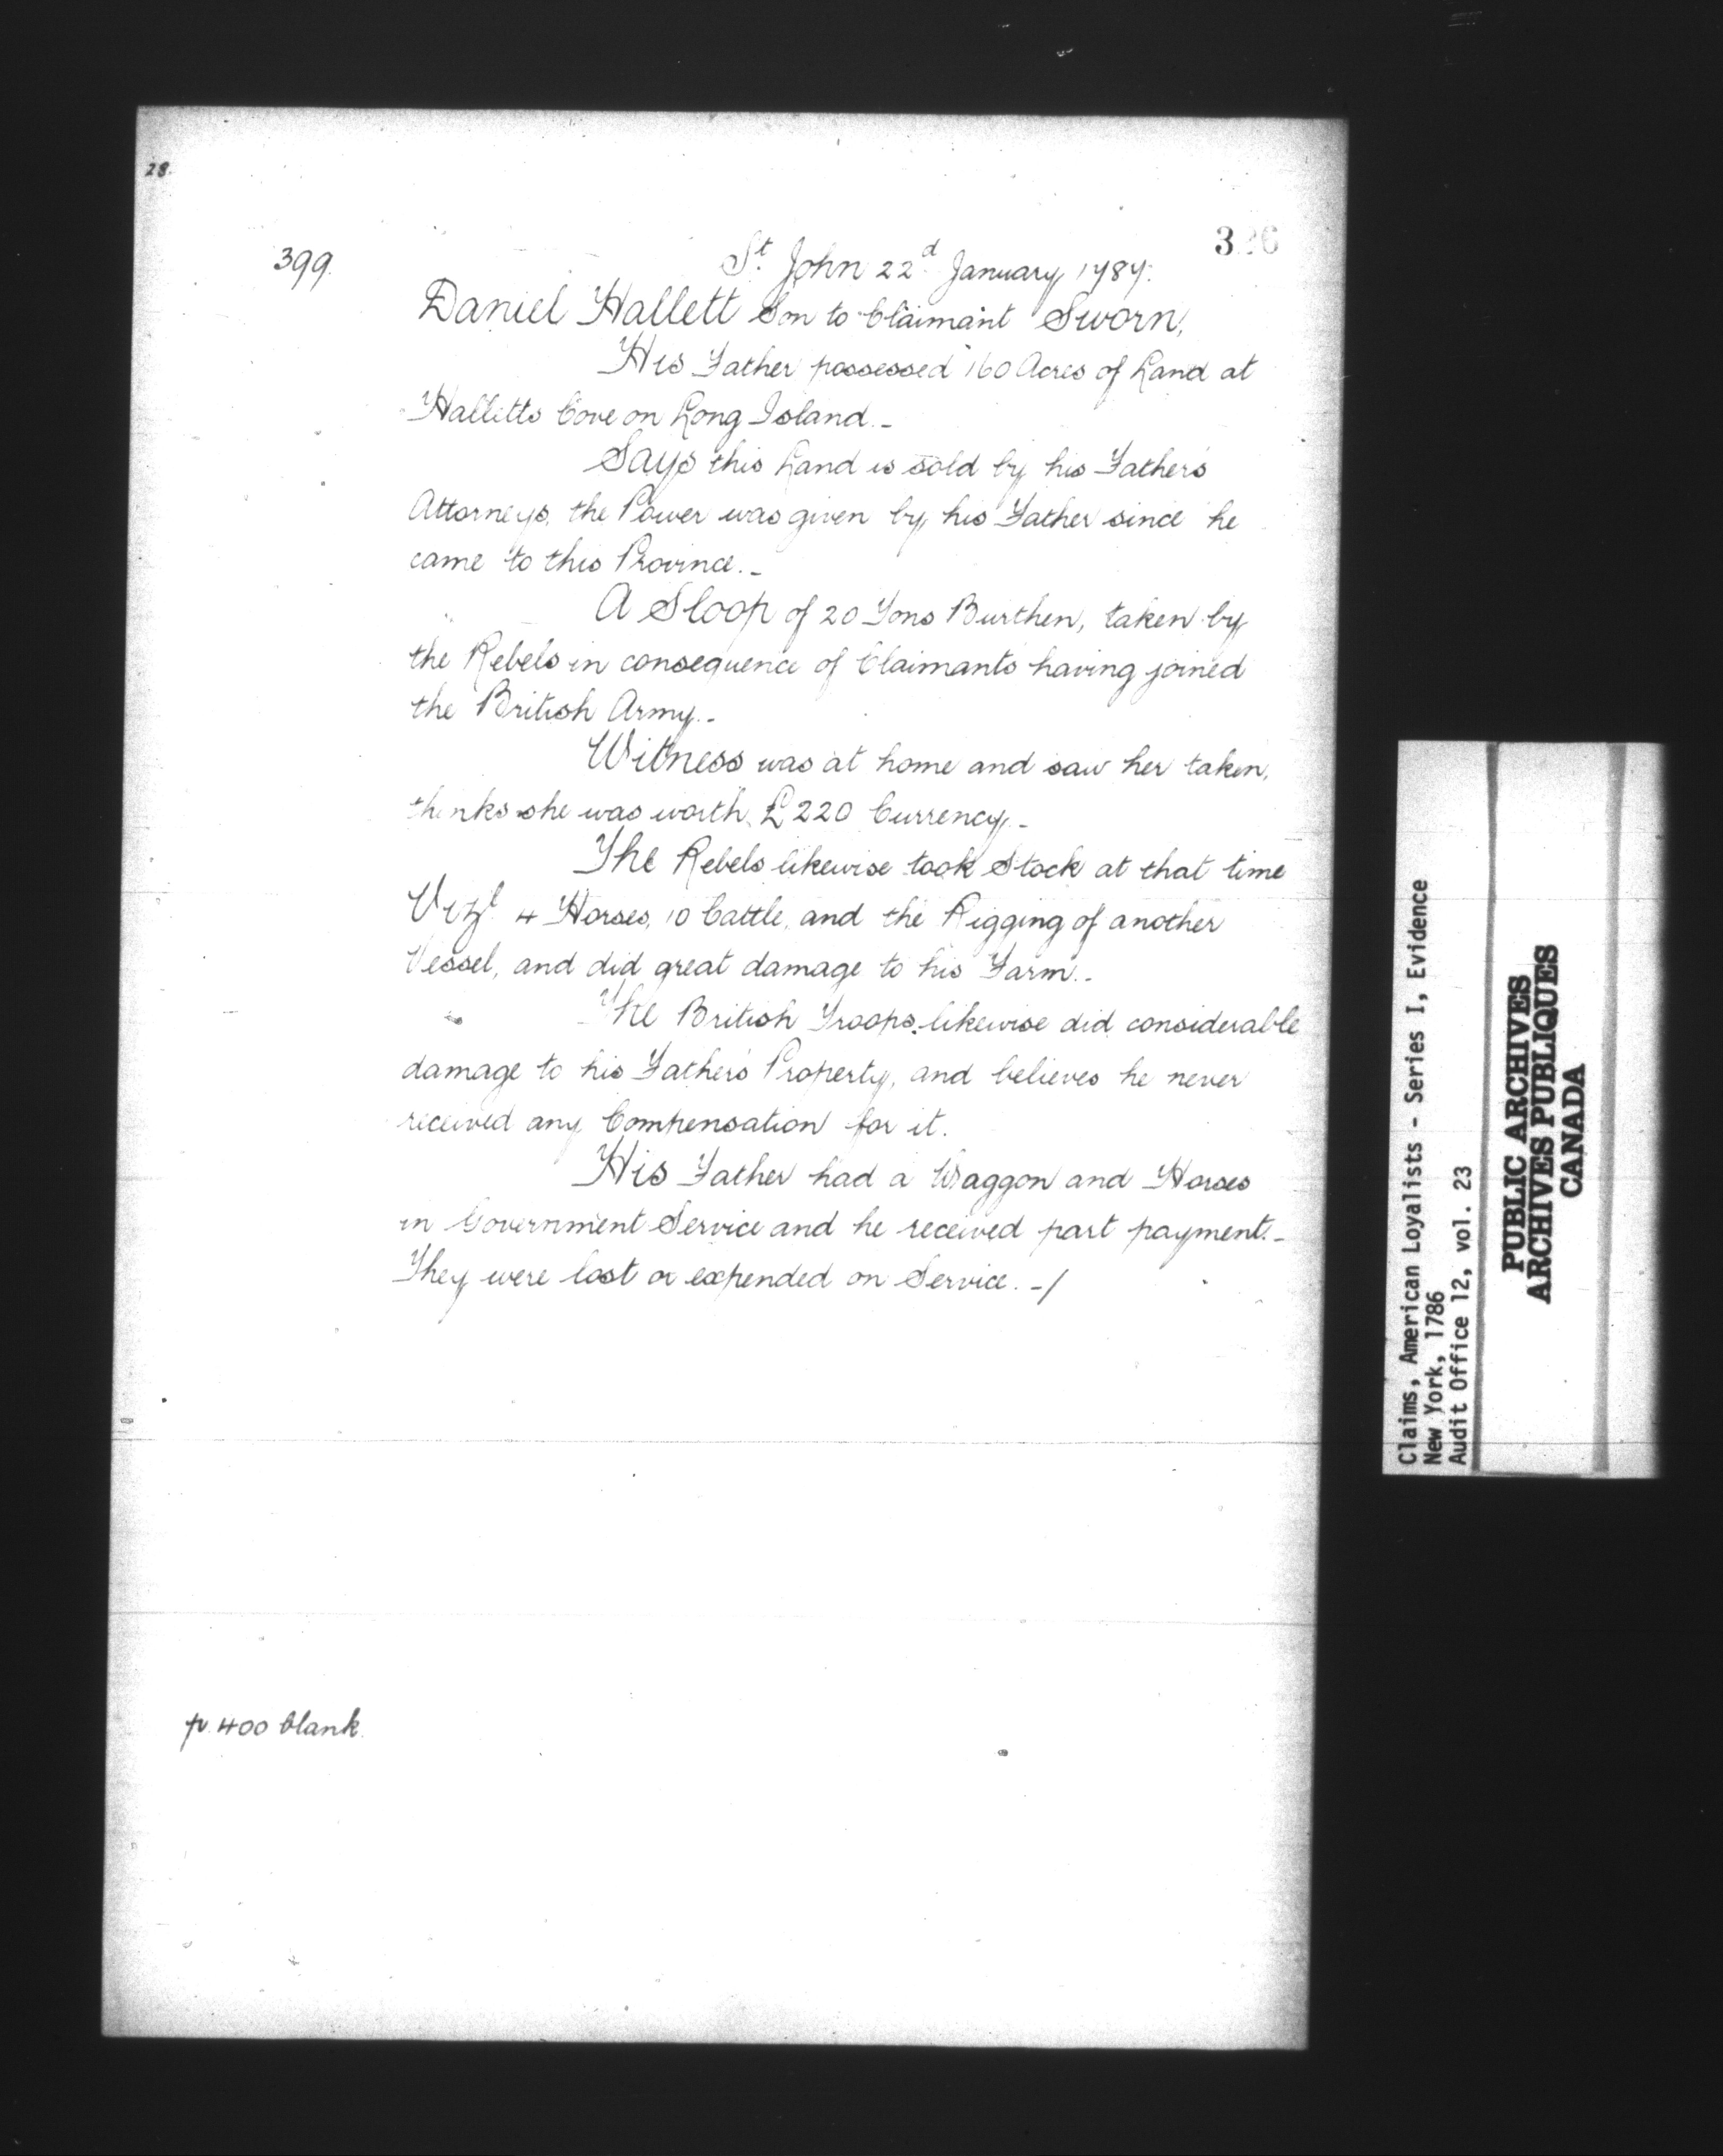 28.
399.
St. John 22d January 1787.
Daniel Hallett Son to Claimant Sworn,
His Father possessed 160 Acres of Land at
Halletts Cove on Long Island.-
Says this Land is sold by his Father's
Attorneys, the Power was given by his Father since he
came to this Province.-
A Sloop of 20 Tons Burthen, taken by
the Rebels in consequence of Claimants having joined
the British Army.-
Witness was at home and saw her taken,
thinks she was worth £220 Currency.-
The Rebels likewise took Stock at that time
Vizt. 4 Horses, 10 Cattle, and the Rigging of another
Vessel, and did great damage to his Farm.-
The British Troops likewise did considerable
damage to his Father's Property, and believes he never
received any Compensation for it.
His Father had a Waggon and Horses
in Government Service and he received part payment.-
They were lost or expended on Service.-/
p. 400 blank.
Claims, American Loyalists - Series I, Evidence
New York, 1786
Audit Office 12, vol. 23
PUBLIC ARCHIVES
ARCHIVES PUBLIQUES
CANADA